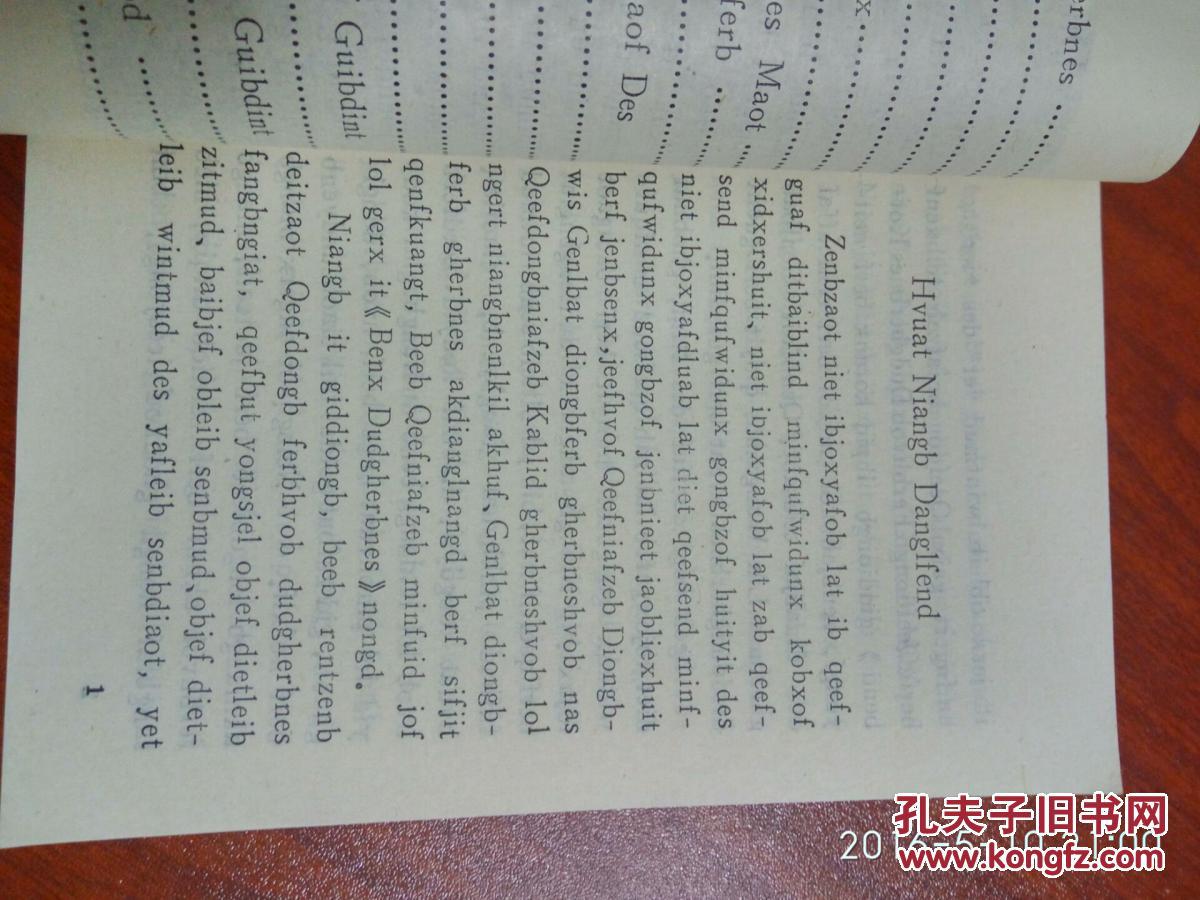 erbnes
x
es Maot
ferb
aof Des
Guibdint
Guibdint
d
Hvuat Niangb Danglfend
Zenbzaot niet ibjoxyafob lat ib qeef-
guaf ditbaiblind minfqufwidunx kobxof
xidxershuit, niet ibjoxyafob lat zab qeef-
send minfqufwidunx gongbzof huityit des
niet ibjoxyafdluab lat diet qeefsend minf-
qufwidunx gongbzof jenbnieet jaobliexhuit
berf jenbsenx, jeefhvof Qeefniafzeb Diongb-
wis Genlbat diongbferb gherbneshvob nas
Qeefdongbniafzeb Kablid gherbneshvob lol
ngert niangbnenlkil akhuf、Genlbat diongb-
ferb gherbnes akdianglnangd berf sifjit
qenfkuangt, Beeb Qeefniafzeb minfuid jof
lol gerx it《Benx Dudgherbnes》nongd.
Niangb it giddiongb, beeb rentzenb
deitzaot Qeefdongb ferbhvob dudgherbnes
fangbngiat, qeefbut yongsjel objef dietleib
zitmud、baibjef obleib senbmud、objef diet-
leib wintmud des yafleib senbdiaot, yet
1
孔夫子旧书网
www.kongfz.com